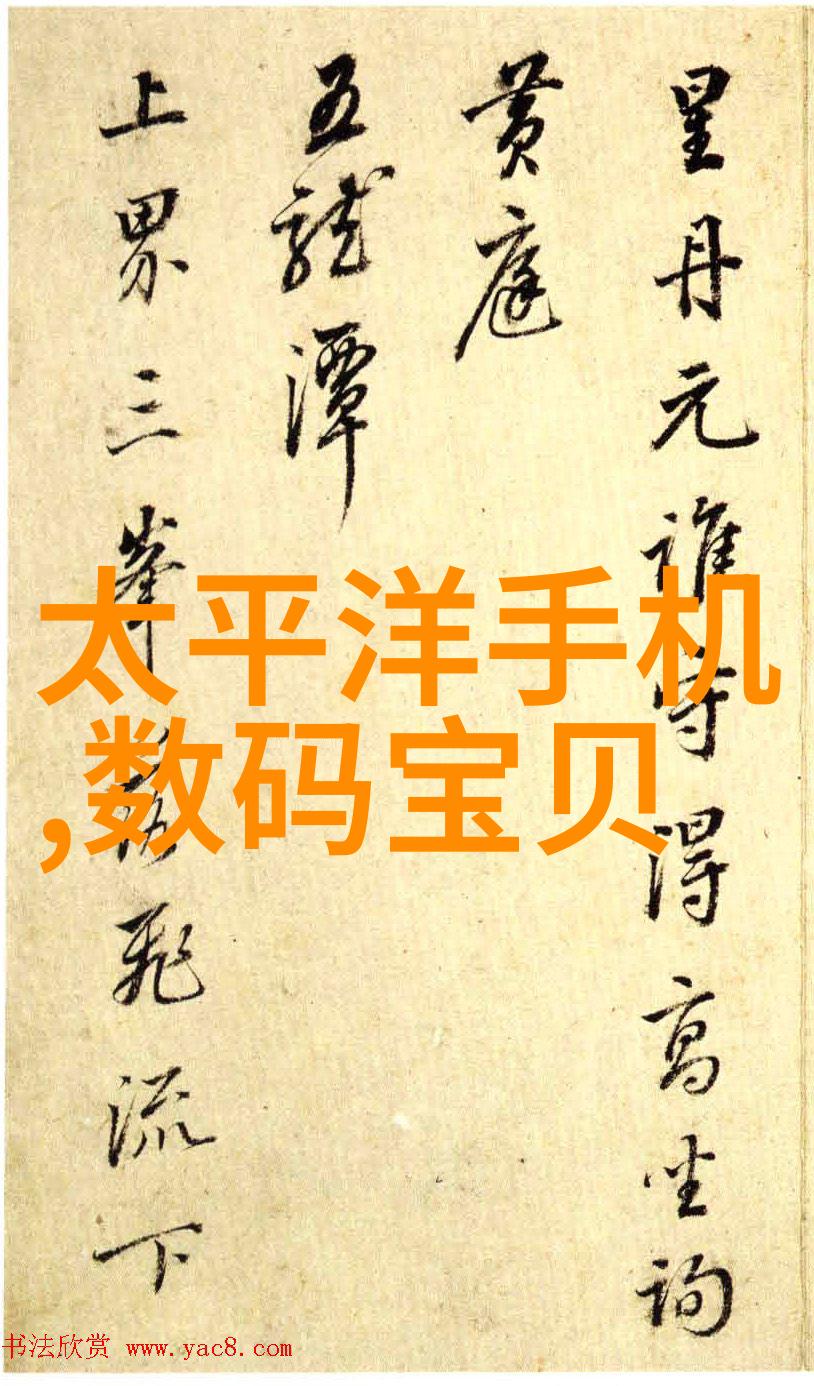 星丹元谁守得高坐询
黄庭
五龙潭
上界三峰
飞流下
太平洋手机
,数码宝贝
书法欣赏 www.yac8.com